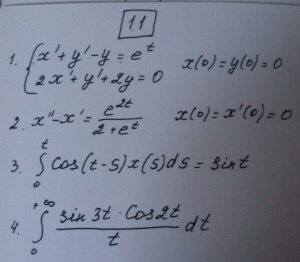 11
1. { x' + y' - y = e^t
2x' + y' + 2y = 0    x(0) = y(0) = 0
2. x'' - x' = e^{2t} / (2 + e^t)    x(0) = x'(0) = 0
3. ∫_0^t cos(t-s) x(s) ds = sin t
4. ∫_0^{+∞} (sin 3t · cos 2t) / t dt